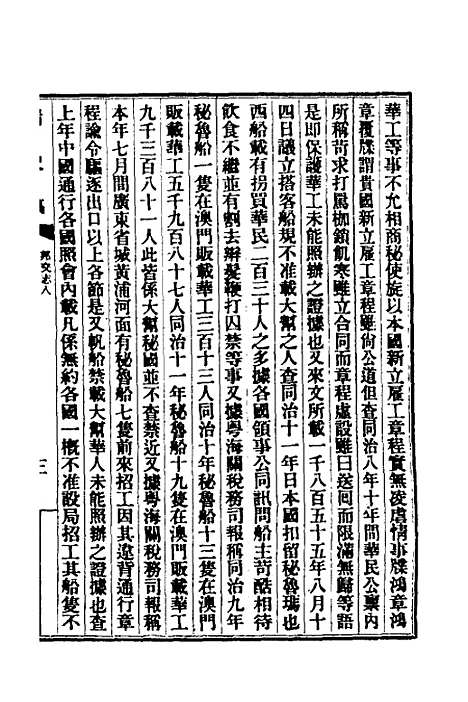 華工等事不允相商秘使旋以本國新立雇工章程實無凌虐情事牒鴻章鴻
章覆牒謂貴國新立雇工章程雖尙公道但查同治八年十年間華民公稟內
所稱苛求打罵枷鎖飢寒雖立合同而章程虛設雖曰送囘而限滿無歸等語
是卽保護華工未能照辦之證據也又來文所載一千八百五十五年八月十
四日議立搭客船規不准載大幫之人查同治十一年日本國扣留秘魯瑪也
西船載有拐買華民二百三十人之多據各國領事公同訊問船主苛酷相待
飲食不繼並有割去辮髮鞭打囚禁等事又據粵海關稅務司報稱同治九年
秘魯船一隻在澳門販載華工三百十三人同治十年秘魯船十三隻在澳門
販載華工五千九百八十七人同治十一年秘魯船十九隻在澳門販載華工
九千三百八十一人此皆係大幫秘國並不查禁近又據粵海關稅務司報稱
本年七月間廣東省城黃浦河面有秘魯船七隻前來招工因其違背通行章
程諭令驅逐出口以上各節是又帆船禁載大幫華人未能照辦之證據也查
上年中國通行各國照會內載凡係無約各國一槪不准設局招工其船隻不
邦交志八
三